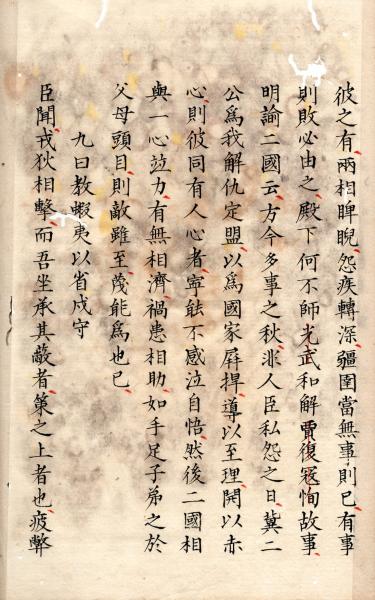 彼之有兩相睥睨怨疾轉深疆圉當無事則已有事
則敗必由之殿下何不師光武和解賈復寇恂故事
明諭二國云方今多事之秋非人臣私怨之日冀二
公爲我解仇定盟以爲國家屛捍導以至理開以赤
心則彼同有人心者寧能不感泣自悟然後二國相
與一心竝力有無相濟禍患相助如手足子弟之於
父母頭目則敵雖至蔑能爲也已
九曰教蝦夷以省戍守
臣聞戎狄相擊而吾坐承其敝者策之上者也疲弊